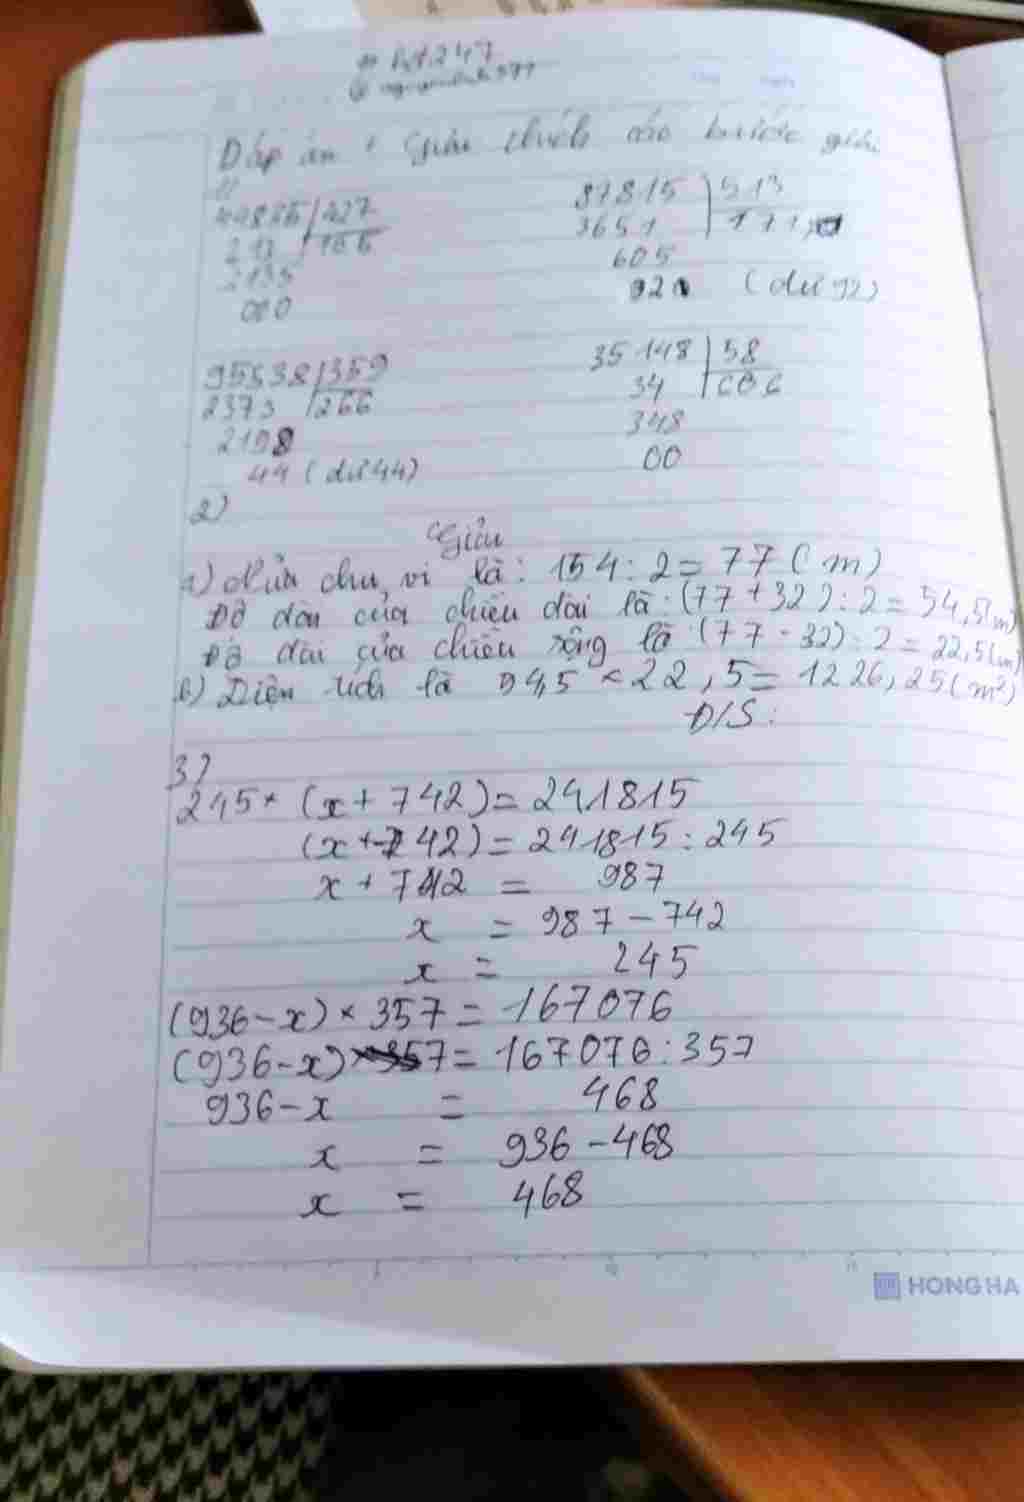 Đáp án + Giải thích các bước giải
1)
44835 | 427
213 | 105
2135
000
87815 | 513
3651 | 171
605
92 (dư 92)
95538 | 359
2373 | 266
2198
44 (dư 44)
35148 | 58
34 | 606
348
00
2)
Giải
a) Nửa chu vi là: 154 : 2 = 77 ( m )
Độ dài của chiều dài là : (77 + 32) : 2 = 54,5 (m)
Độ dài của chiều rộng là : (77 - 32) : 2 = 22,5 (m)
b) Diện tích là 54,5 × 22,5 = 1226,25 ( m²)
Đ/S :
3)
245 × (x + 742) = 241815
(x + 742) = 241815 : 245
x + 742 = 987
x = 987 - 742
x = 245
(936 - x) × 357 = 167076
(936 - x) = 167076 : 357
936 - x = 468
x = 936 - 468
x = 468
HONG HA